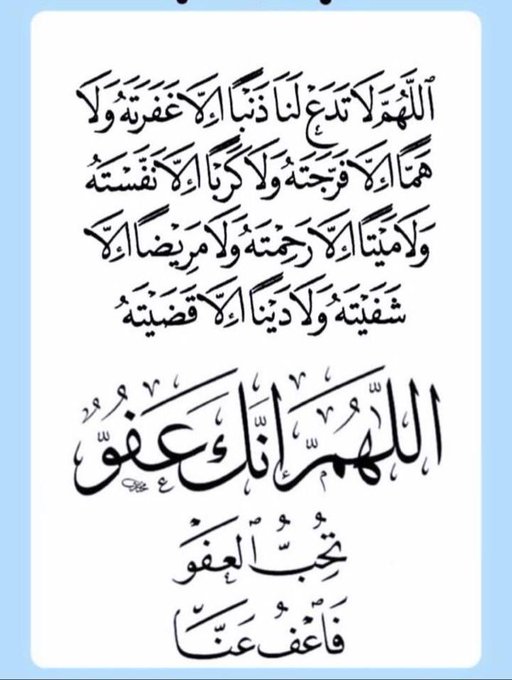 ٱللَّهُمَّ لَا تَدَعْ لَنَا ذَنْبًا إِلَّا غَفَرْتَهُ وَلَا
هَمًّا إِلَّا فَرَّجْتَهُ وَلَا كَرْبًا إِلَّا نَفَّسْتَهُ
وَلَا مَيْتًا إِلَّا رَحِمْتَهُ وَلَا مَرِيْضًا إِلَّا
شَفَيْتَهُ وَلَا دَيْنًا إِلَّا قَضَيْتَهُ
اللَّهُمَّ إِنَّكَ عَفُوٌّ
تُحِبُّ ٱلْعَفْوَ
فَاعْفُ عَنَّا